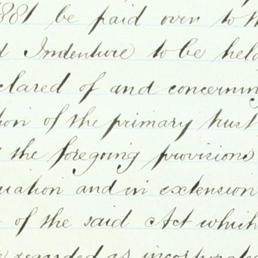 1881 be paid over to th
d Indenture to be held
clared of and concerning
tion of the primary trust
the foregoing provisions
uation and in extension
of the said Act which
regarded as incorporate